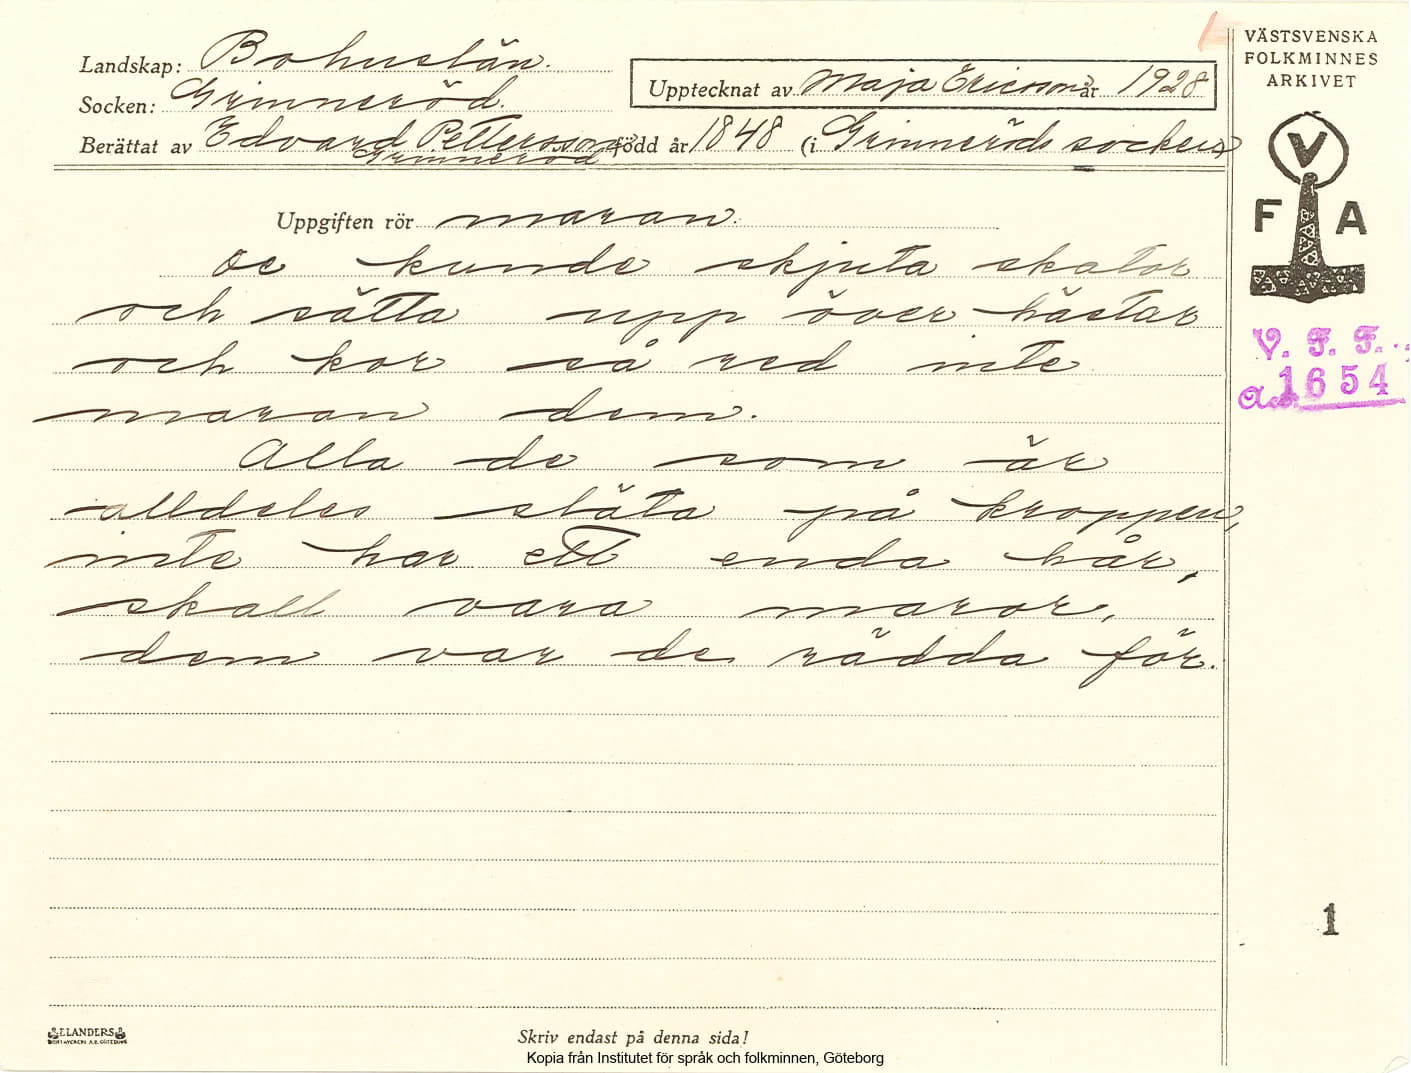 Landskap: Bohuslän.
Socken: Grinneröd.
Upptecknat av Maja Ericsson år 1928
Berättat av Edvard Pettersson född år 1848 (i Grinneröds socken)
Grinneröd
Uppgiften rör maran.
De kunde skjuta skator
och sätta upp över hästar
och kor så red inte
maran dem.
Alla de som är
alldeles släta på kroppen,
inte har ett enda hår,
skall vara maror,
dem var de rädda för.
VÄSTSVENSKA
FOLKMINNES
ARKIVET
V
F A
V. F. F.
1654
1
ELANDERS
Skriv endast på denna sida!
Kopia från Institutet för språk och folkminnen, Göteborg